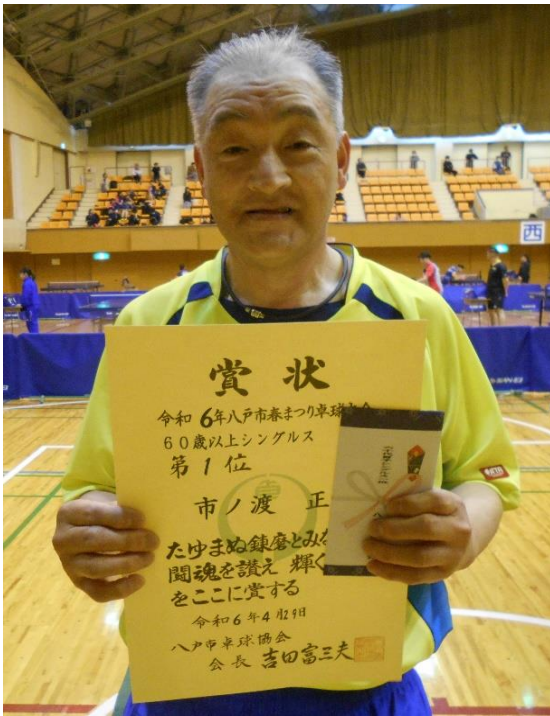 西
賞状
令和6年八戸市春まつり卓球
60歳以上シングルス
第1位
市ノ渡 正
たゆまぬ錬磨とみな
闘魂を讃え 輝く
をここに賞する
令和6年4月29日
八戸市卓球協会
会長 吉田富三夫